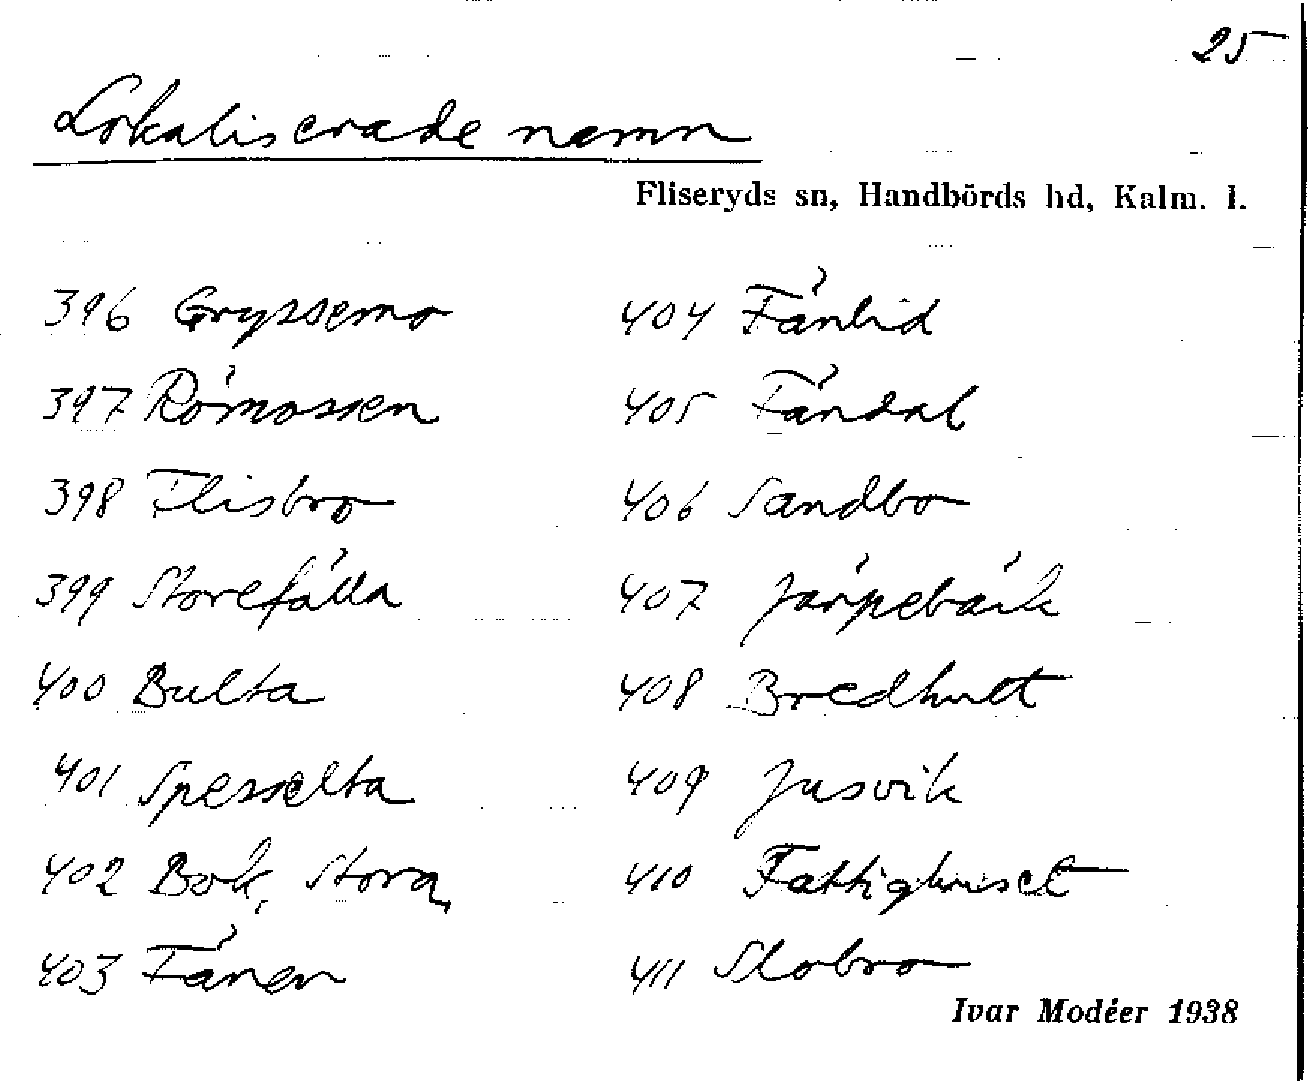 25
Lokaliserade namn
Fliseryds sn, Handbörds hd, Kalm. l.
396 Gryssemo
397 Römossen
398 Flisbro
399 Storefälla
400 Bulta
401 Spesselta
402 Bok, Stora,
403 Fånen
404 Fånlid
405 Fåndal
406 Sandbo
407 Järpebäck
408 Bredhult
409 Jusvik
410 Fattighuset
411 Slobro
Ivar Modéer 1938